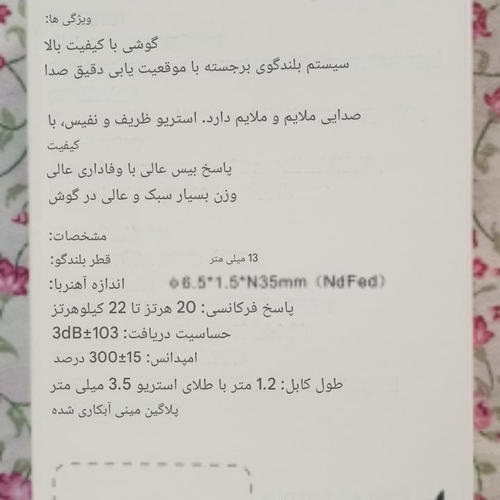 ویژگی ها:
گوشی با کیفیت بالا
سیستم بلندگوی برجسته با موقعیت یابی دقیق صدا
صدایی ملایم و ملایم دارد. استریو ظریف و نفیس، با
کیفیت
پاسخ بیس عالی با وفاداری عالی
وزن بسیار سبک و عالی در گوش
مشخصات:
قطر بلندگو: 13 میلی متر
اندازه آهنربا: ϕ6.5*1.5*N35mm (NdFed)
پاسخ فرکانسی: 20 هرتز تا 22 کیلوهرتز
حساسیت دریافت: 103±3dB
امپدانس: 15±300 درصد
طول کابل: 1.2 متر با طلای استریو 3.5 میلی متر
پلاگین مینی آبکاری شده